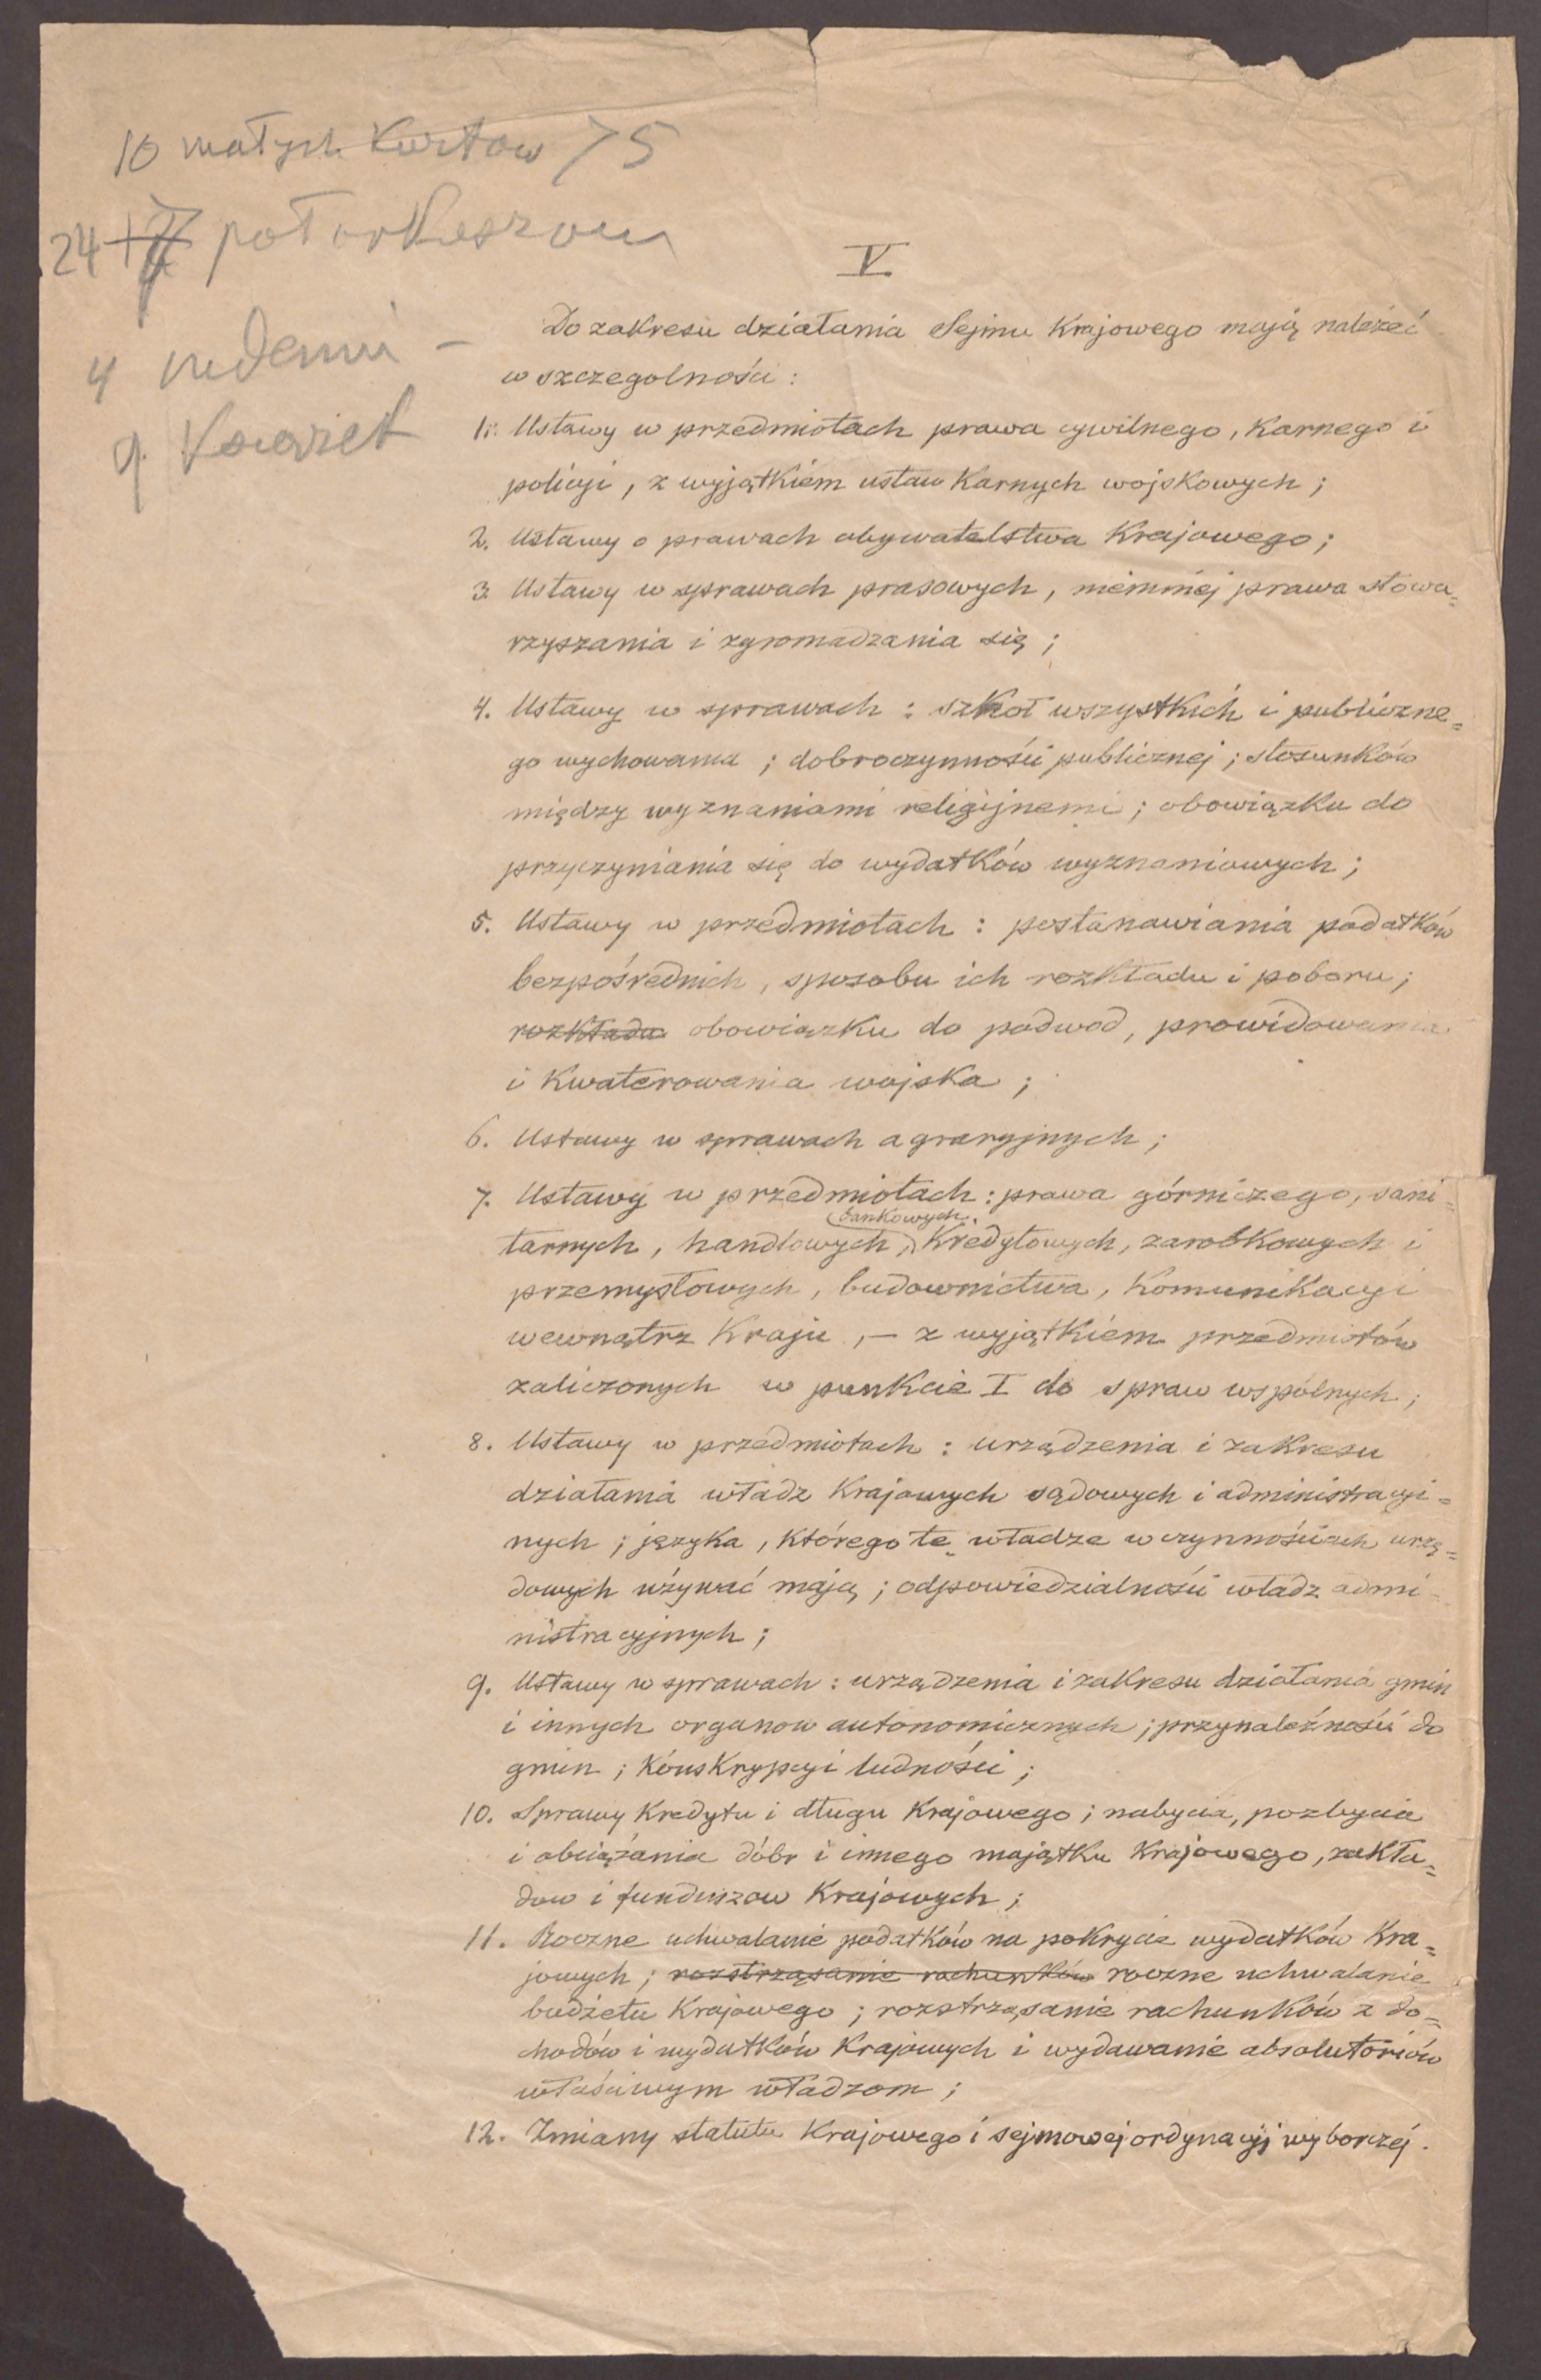 10 małych Kartow 75
24+7 pół arkuszowy
4
9
V.
Do zakresu działania Sejmu Krajowego mają należeć
w szczegolności :
1. Ustawy w przedmiotach prawa cywilnego, Karnego i
policyi, z wyjątkiem ustaw Karnych wojskowych ;
2. Ustawy o prawach obywatelstwa Krajowego ;
3. Ustawy w sprawach prasowych, niemniej prawa stowa=
rzyszania i zgromadzania się ;
4. Ustawy w sprawach : szkoł wszystkich i publiczne=
go wychowania ; dobroczynności publicznej ; stosunków
między wyznaniami religijnemi ; obowiązku do
przyczyniania się do wydatków wyznaniowych ;
5. Ustawy w przedmiotach : postanawiania podatków
bezpośrednich, sposobu ich rozkładu i poboru ;
rozkładu obowiązku do podwod, prowidowania
i Kwaterowania wojska ;
6. Ustawy w sprawach agraryjnych ;
7. Ustawy w przedmiotach : prawa górniczego, sani=
bankowych,
tarnych, handlowych, Kredytowych, zarobkowych i
przemysłowych, budownictwa, Komunikacyi
wewnątrz Kraju, — z wyjątkiem przedmiotów
zaliczonych w punkcie I do spraw wspólnych ;
8. Ustawy w przedmiotach : urządzenia i zakresu
działania władz Krajowych sądowych i administracyj=
nych ; języka, którego te władze w czynnościach urzę=
dowych używać mają ; odpowiedzialności władz admi=
nistracyjnych ;
9. Ustawy w sprawach : urządzenia i zakresu działania gmin
i innych organow autonomicznych ; przynależności do
gmin ; Konskrypcyi ludności ;
10. Sprawy Kredytu i długu Krajowego ; nabycia, pozbycia
i obciążania dóbr i innego majątku Krajowego, zakła=
dow i funduszow Krajowych ;
11. Roczne uchwalanie podatków na pokrycie wydatków Kra=
jowych ; rozstrząsanie rachunków roczne uchwalanie
budżetu Krajowego ; rozstrząsanie rachunków z do=
chodów i wydatków Krajowych i wydawanie absolutoriów
właściwym władzom ;
12. Zmiany statutu Krajowego i sejmowej ordynacyj wyborczéj.